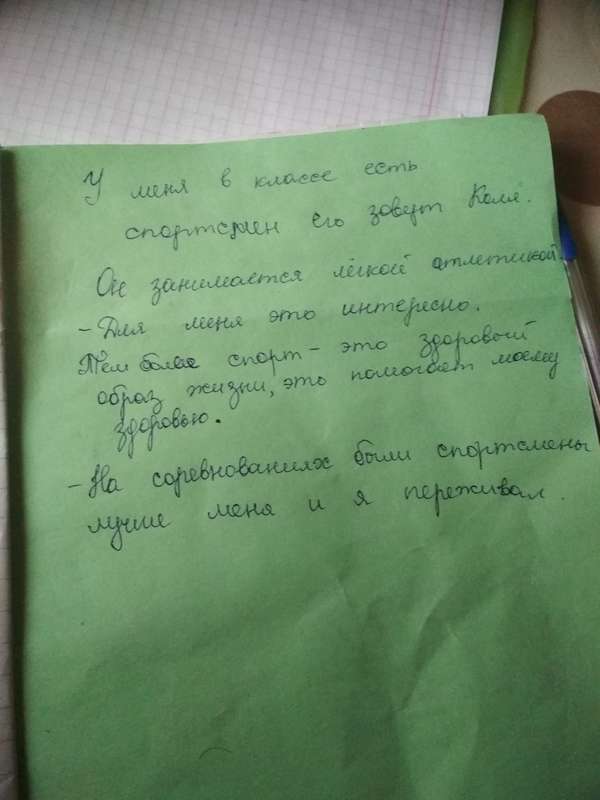 У меня в классе есть
спортсмен его зовут Коля.
Он занимается лёгкой атлетикой.
- Для меня это интересно.
Тем более спорт - это здоровый
образ жизни, это помогает моему
здоровью.
- На соревнованиях были спортсмены
лучше меня и я переживал.